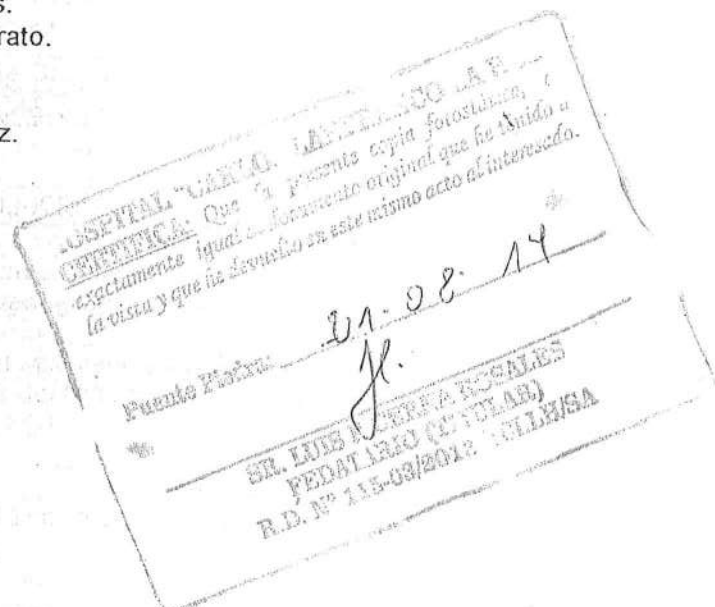 s.
rato.
z.
HOSPITAL "CARLOS LANFRANCO LA H
CERTIFICA: Que la presente copia fotostática, é
exactamente igual al documento original que he tenido a
la vista y que he devuelto en este mismo acto al interesado.
Puente Piedra: 21.08.14
SR. LUIS ROSALES
FEDATARIO (TITULAR)
R.D. Nº 115-03/2012 HCLLH/SA